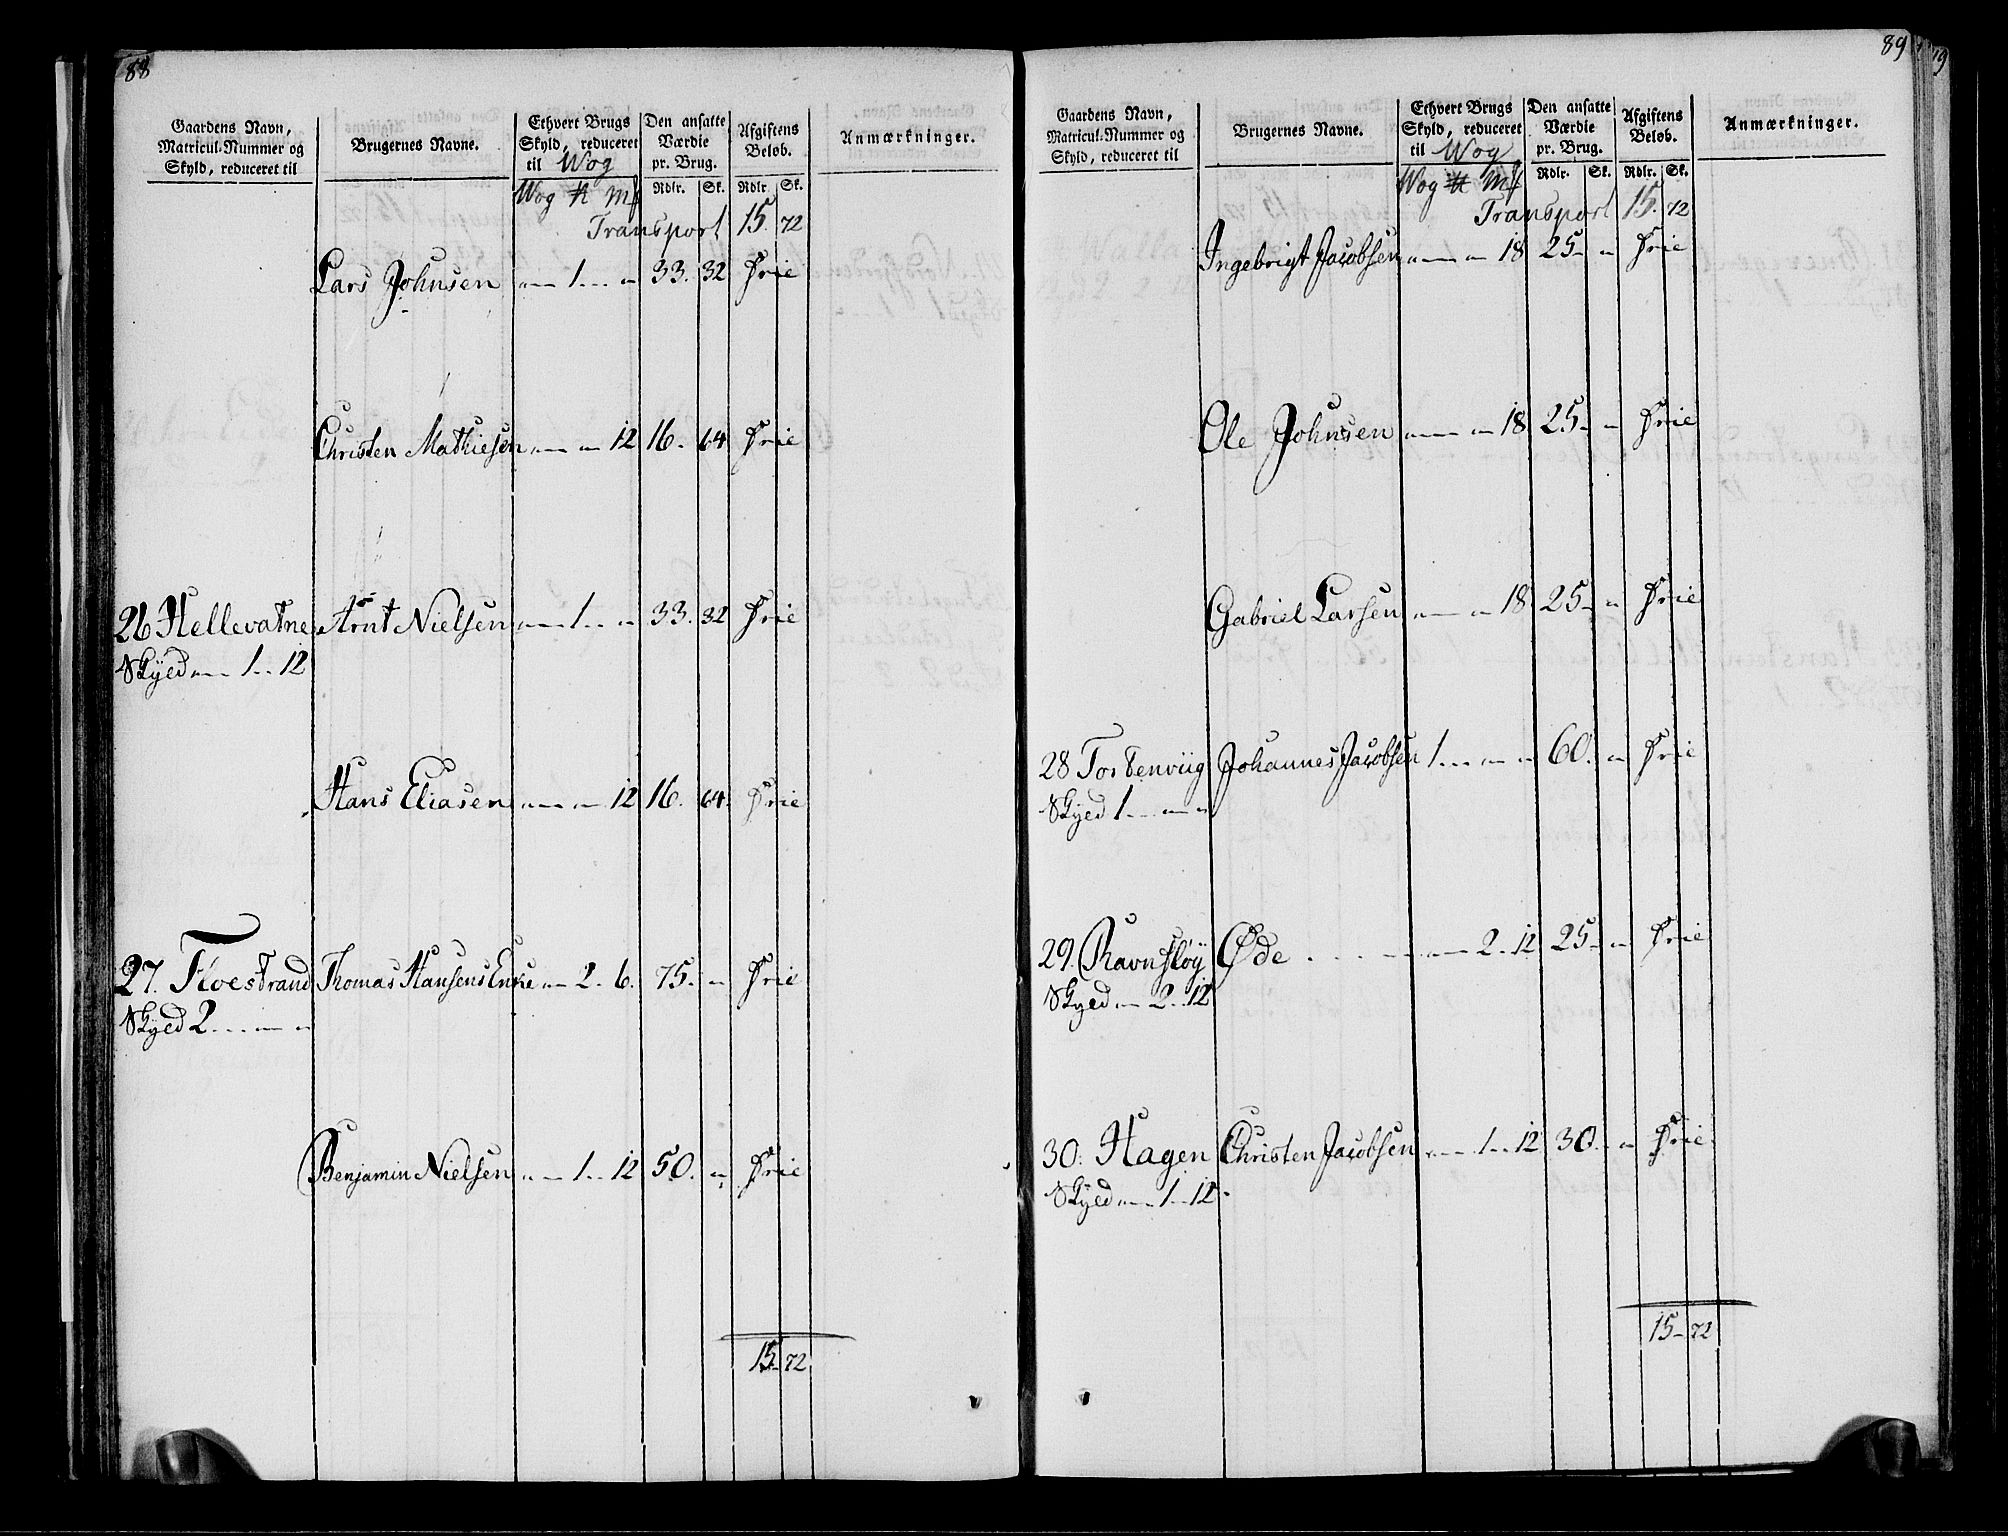 88
Gaardens Navn, Matricul-Nummer og Skyld, reduceret til
Brugernes Navne.
Ethvert Brugs Skyld, reduceret til Wog
Den ansatte Værdie pr. Brug.
Afgiftens Beløb.
Anmærkninger.
Wog ℔ Mk Rdlr. Sk. Rdlr. Sk.
Transport 15. 72
Lars Johnsen „ — 1 .. „ 33. 32 Frie
Christen Mathiesen „ — „ — 12 16. 64 Frie
26 Hellevatne Arnt Nielsen „ — 1 .. „ 33. 32 Frie
Skyld „ — 1 .. 12
Hans Eliasen „ — „ — 12 16. 64. Frie
27. Floestrand Thomas Hansens Enke „ — 2. 6. 75. „ Frie
Skyld 2 ... „ — „
Benjamin Nielsen „ — 1 .. 12 50. „ Frie
15 - 72
89
Gaardens Navn, Matricul-Nummer og Skyld, reduceret til
Brugernes Navne.
Ethvert Brugs Skyld, reduceret til Wog
Den ansatte Værdie pr. Brug.
Afgiftens Beløb.
Anmærkninger.
Wog ℔ Mk Rdlr. Sk. Rdlr. Sk.
Transport 15. 72
Ingebrigt Jacobsen „ — „ — 18 25 - „ Frie
Ole Johnsen „ — „ — 18 25 - „ Frie
Gabriel Larsen „ — „ — 18 25 - „ Frie
28 Torbenviig Johannes Jacobsen 1 ... „ — „ 60. „ Frie
Skyed 1 ... „ — „
29. Ravnsløy Øde . . . . — „ — 2 .. 12 25 - „ Frie
Skyed „ — 2 .. 12
30. Hagen Christen Jacobsen „ — 1 .. 12 30. „ Frie
Skyed „ — 1 - 12
15 - 72